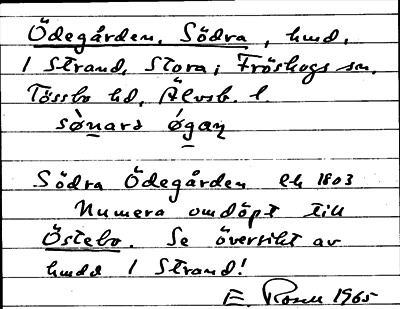 Ödegården, Södra, hmd,
1 Strand, Stora; Fröskogs sn.
Tössbo hd, Älvsb. l.
sø̀nara øgaɳ
Södra Ödegården Ek 1803
Numera omdöpt till
Östebo. Se översikt av
hmdd 1 Strand!
E. Rosén 1965